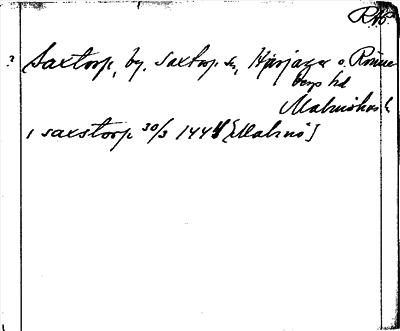 RAP
? Saxtorp, by, Saxtorp sn, Harjager o. Rönne
bergs hd
Malmöhus l.
i saxstorp 30/3 1444 [Malmö]